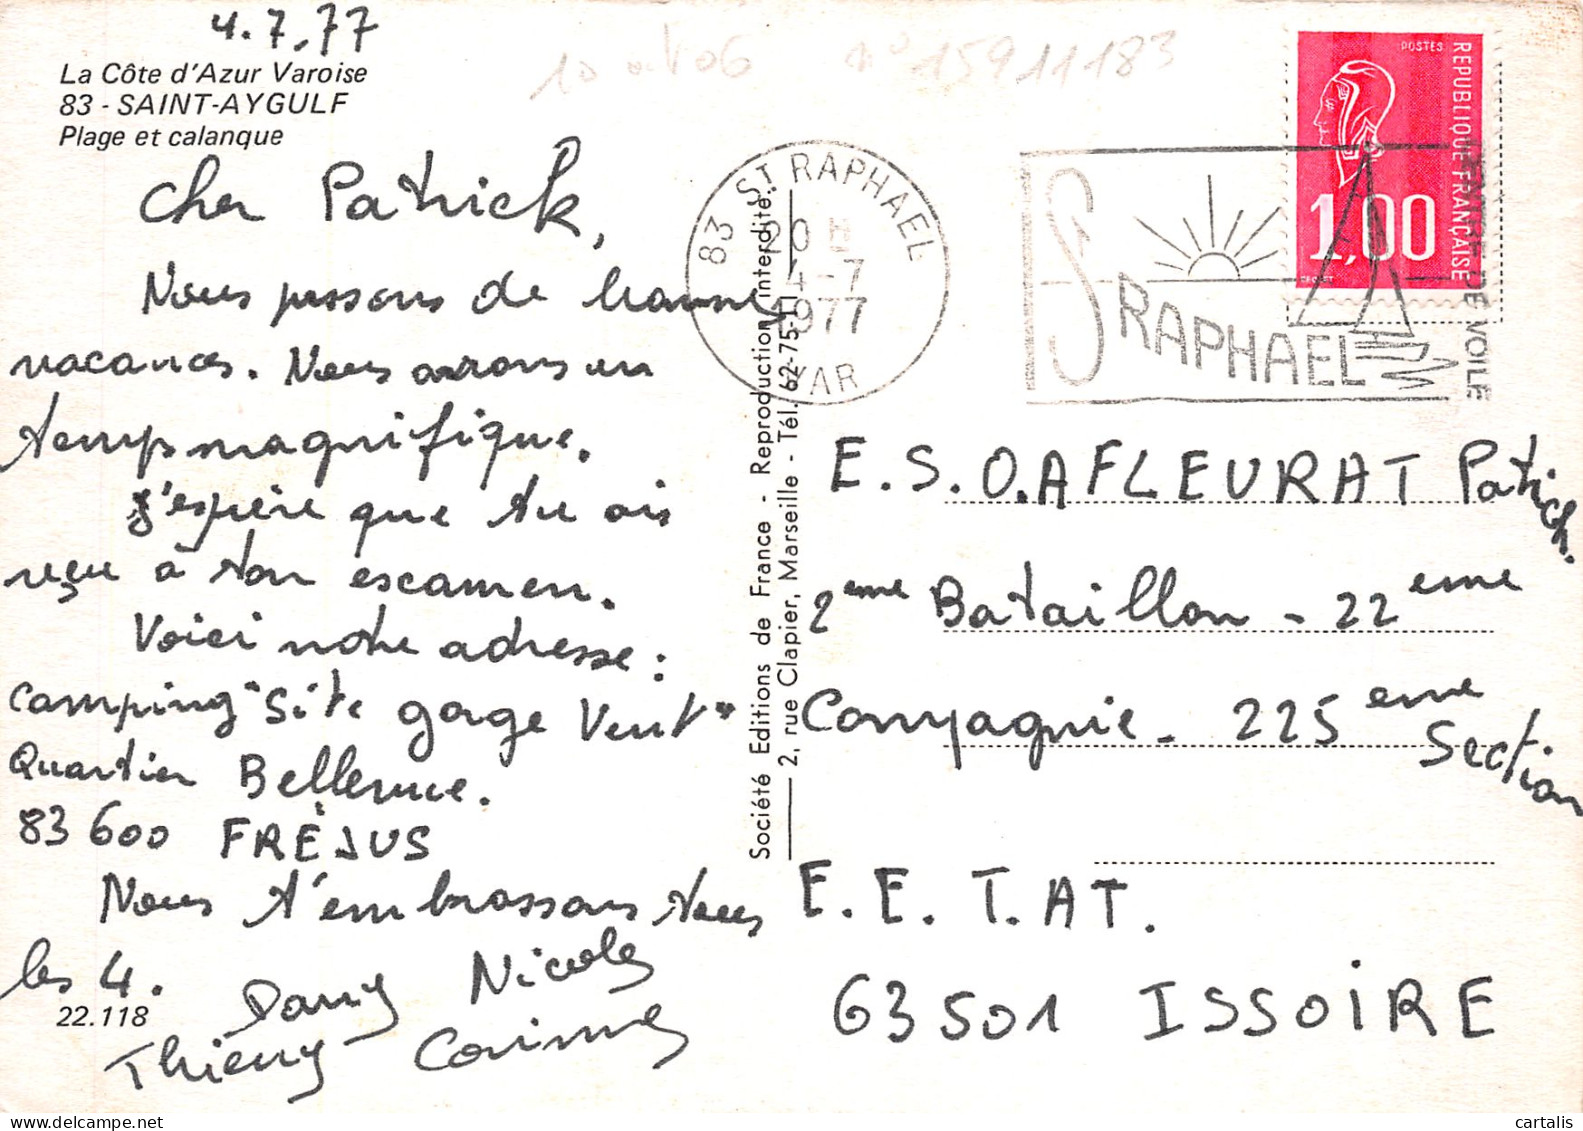 4.7.77
La Côte d'Azur Varoise
83 - SAINT-AYGULF
Plage et calanque
Cher Patrick,
Nous passons de bonnes
vacances. Nous avons un
temps magnifique.
J'espère que tu ais
reçu à ton escamen.
Voici notre adresse :
camping "Site gorge Vent"
Quartier Bellevue.
83 600 FRÉJUS
Nous t'embrassons tous
les 4.
Dany Nicole
Thierry Corinne
22.118
Société Editions de France - Reproduction interdite.
2, rue Clapier, Marseille - Tél. 62-75-11
n° 15911183
83 ST RAPHAEL
20 H
4-7
1977
VAR
ST RAPHAEL
DE VOILE
POSTES
REPUBLIQUE FRANÇAISE
1,00
E.S.O.A FLEURAT Patrick.
2eme Bataillon - 22eme
Compagnie - 225eme Section
E.E.T.AT.
63501 ISSOIRE
www.delcampe.net
cartalis